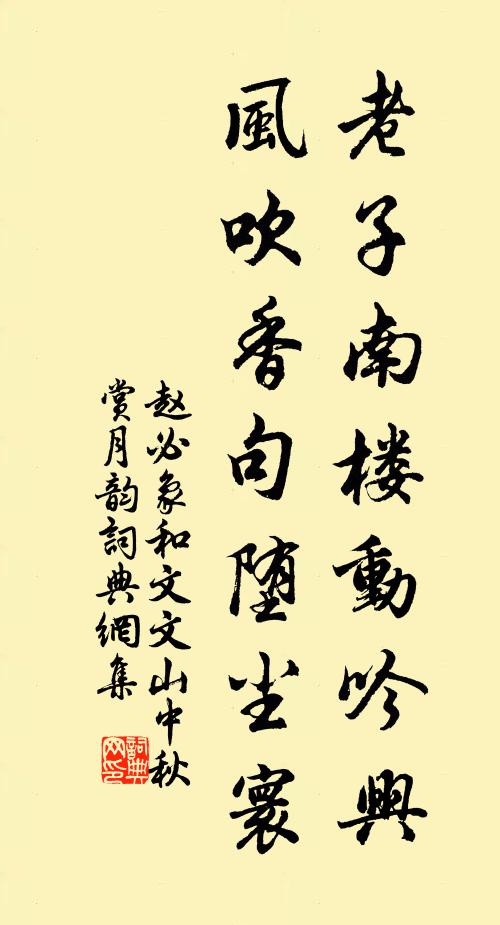 老子南楼動吟興
風吹香句堕尘寰
赵必象和文文山中秋
赏月韵詞典網集
詞典
网印